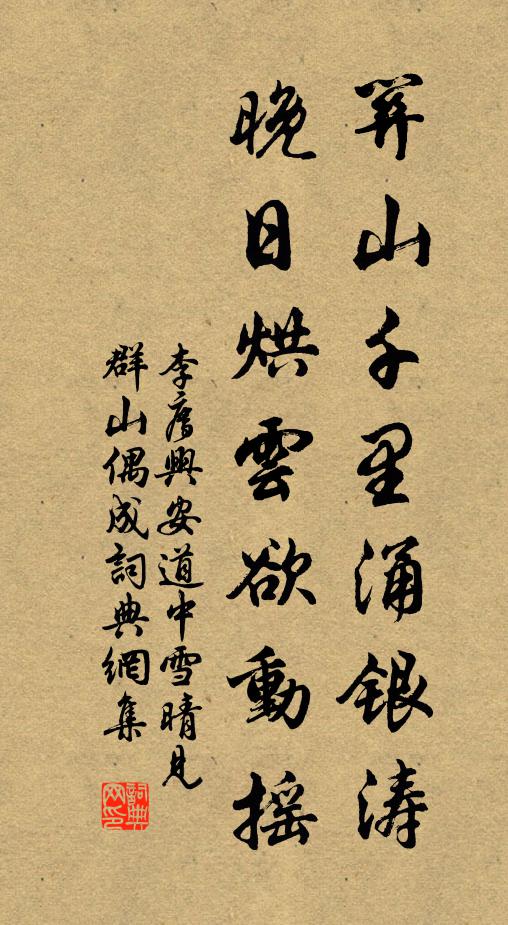 關山千里涌銀濤
晚日烘雲欲動搖
李廌興安道中雪晴見
群山偶成詞典網集
詞典
网印